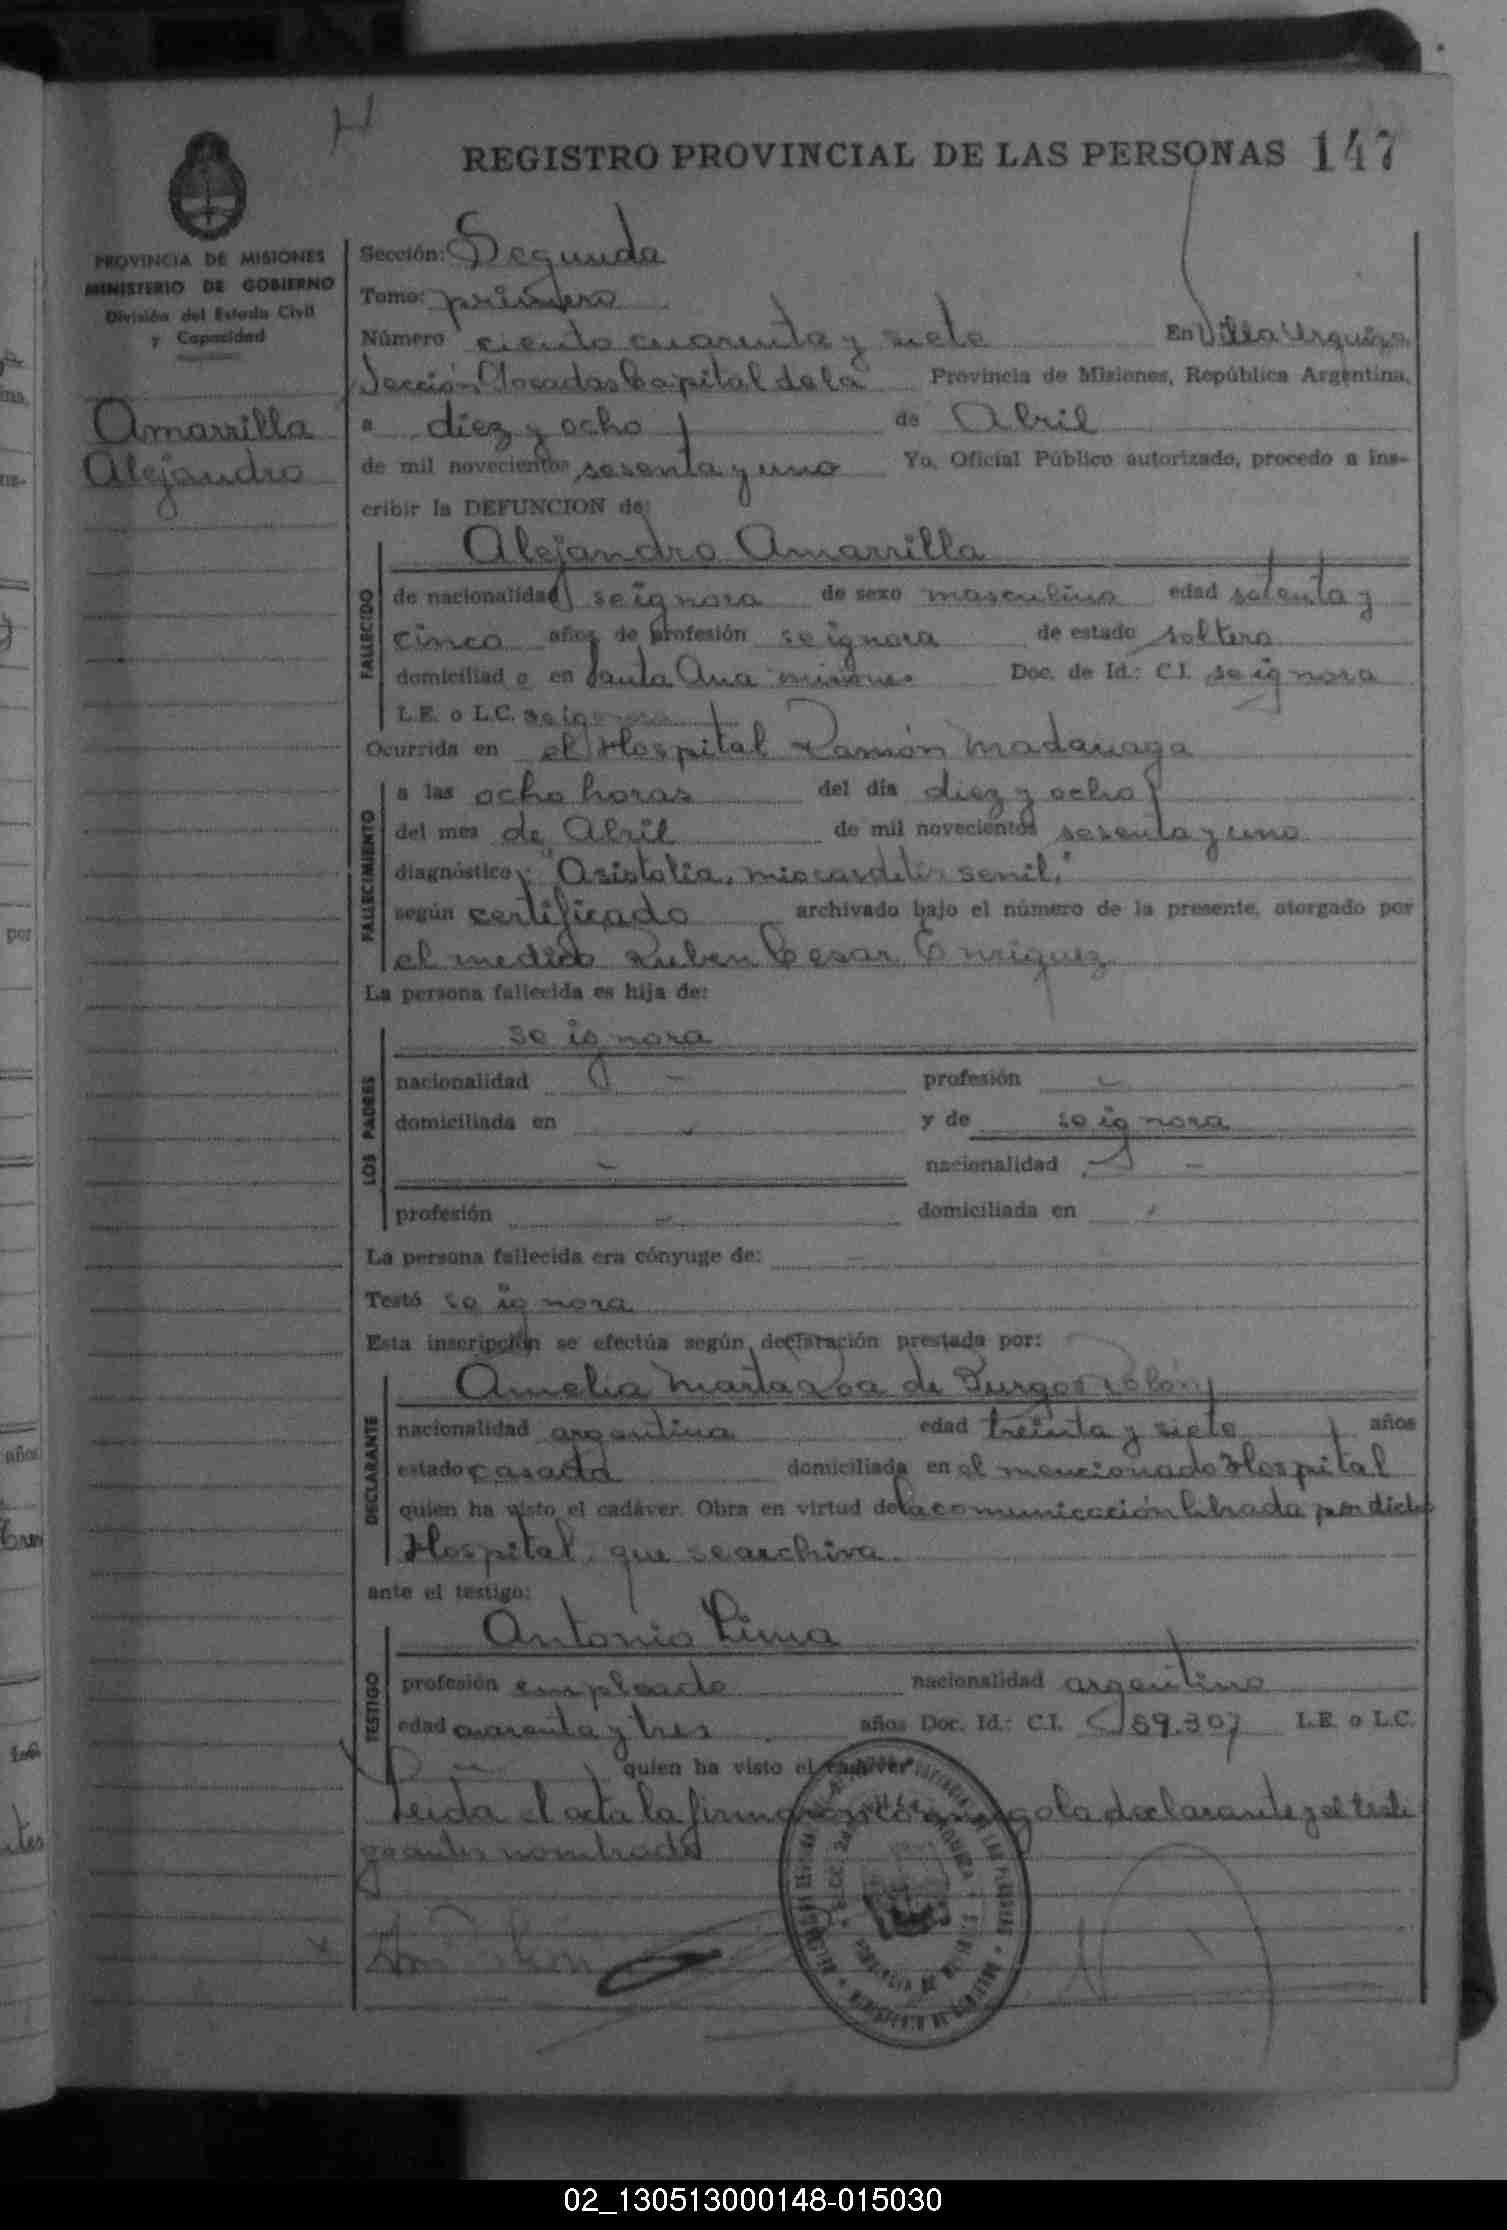 REGISTRO PROVINCIAL DE LAS PERSONAS 147
PROVINCIA DE MISIONES
MINISTERIO DE GOBIERNO
División del Estado Civil
y Capacidad
Amarrilla
Alejandro
Sección: Segunda
Tomo: primero
Número ciento cuarenta y siete En Villa Urquiza
Sección Posadas Capital de la Provincia de Misiones, República Argentina,
a diez y ocho de Abril
de mil novecientos sesenta y uno Yo, Oficial Público autorizado, procedo a ins-
cribir la DEFUNCION de:
Alejandro Amarrilla
FALLECIDO
de nacionalidad se ignora de sexo masculino edad setenta y
cinco años de profesión se ignora de estado soltero
domiciliad o en Santa Ana misiones Doc. de Id.: C.I. se ignora
L.E. o L.C. se ignora
Ocurrida en el Hospital Ramón Madariaga
FALLECIMIENTO
a las ocho horas del día diez y ocho
del mes de Abril de mil novecientos sesenta y uno
diagnóstico: "Asistolia, miocarditis senil."
según certificado archivado bajo el número de la presente, otorgado por
el medico Ruben Cesar Enriquez
La persona fallecida es hija de:
se ignora
LOS PADRES
nacionalidad - profesión -
domiciliada en - y de se ignora
- nacionalidad -
profesión - domiciliada en -
La persona fallecida era cónyuge de: -
Testó se ignora
Esta inscripción se efectúa según declaración prestada por:
Amelia Marta Roa de Burgos Colón
DECLARANTE
nacionalidad argentina edad treinta y siete años
estado casada domiciliada en el mencionado Hospital
quien ha visto el cadáver. Obra en virtud de la comunicación librada por dicho
Hospital, que se archiva.
ante el testigo:
Antonio Lima
TESTIGO
profesión empleado nacionalidad argentino
edad cuarenta y tres años Doc. Id.: C.I. 59.307 L.E. o L.C.
quien ha visto el cadáver
Leida el acta la firmaron conmigo la declarante y el testi
go antes nombrado
02_130513000148-015030